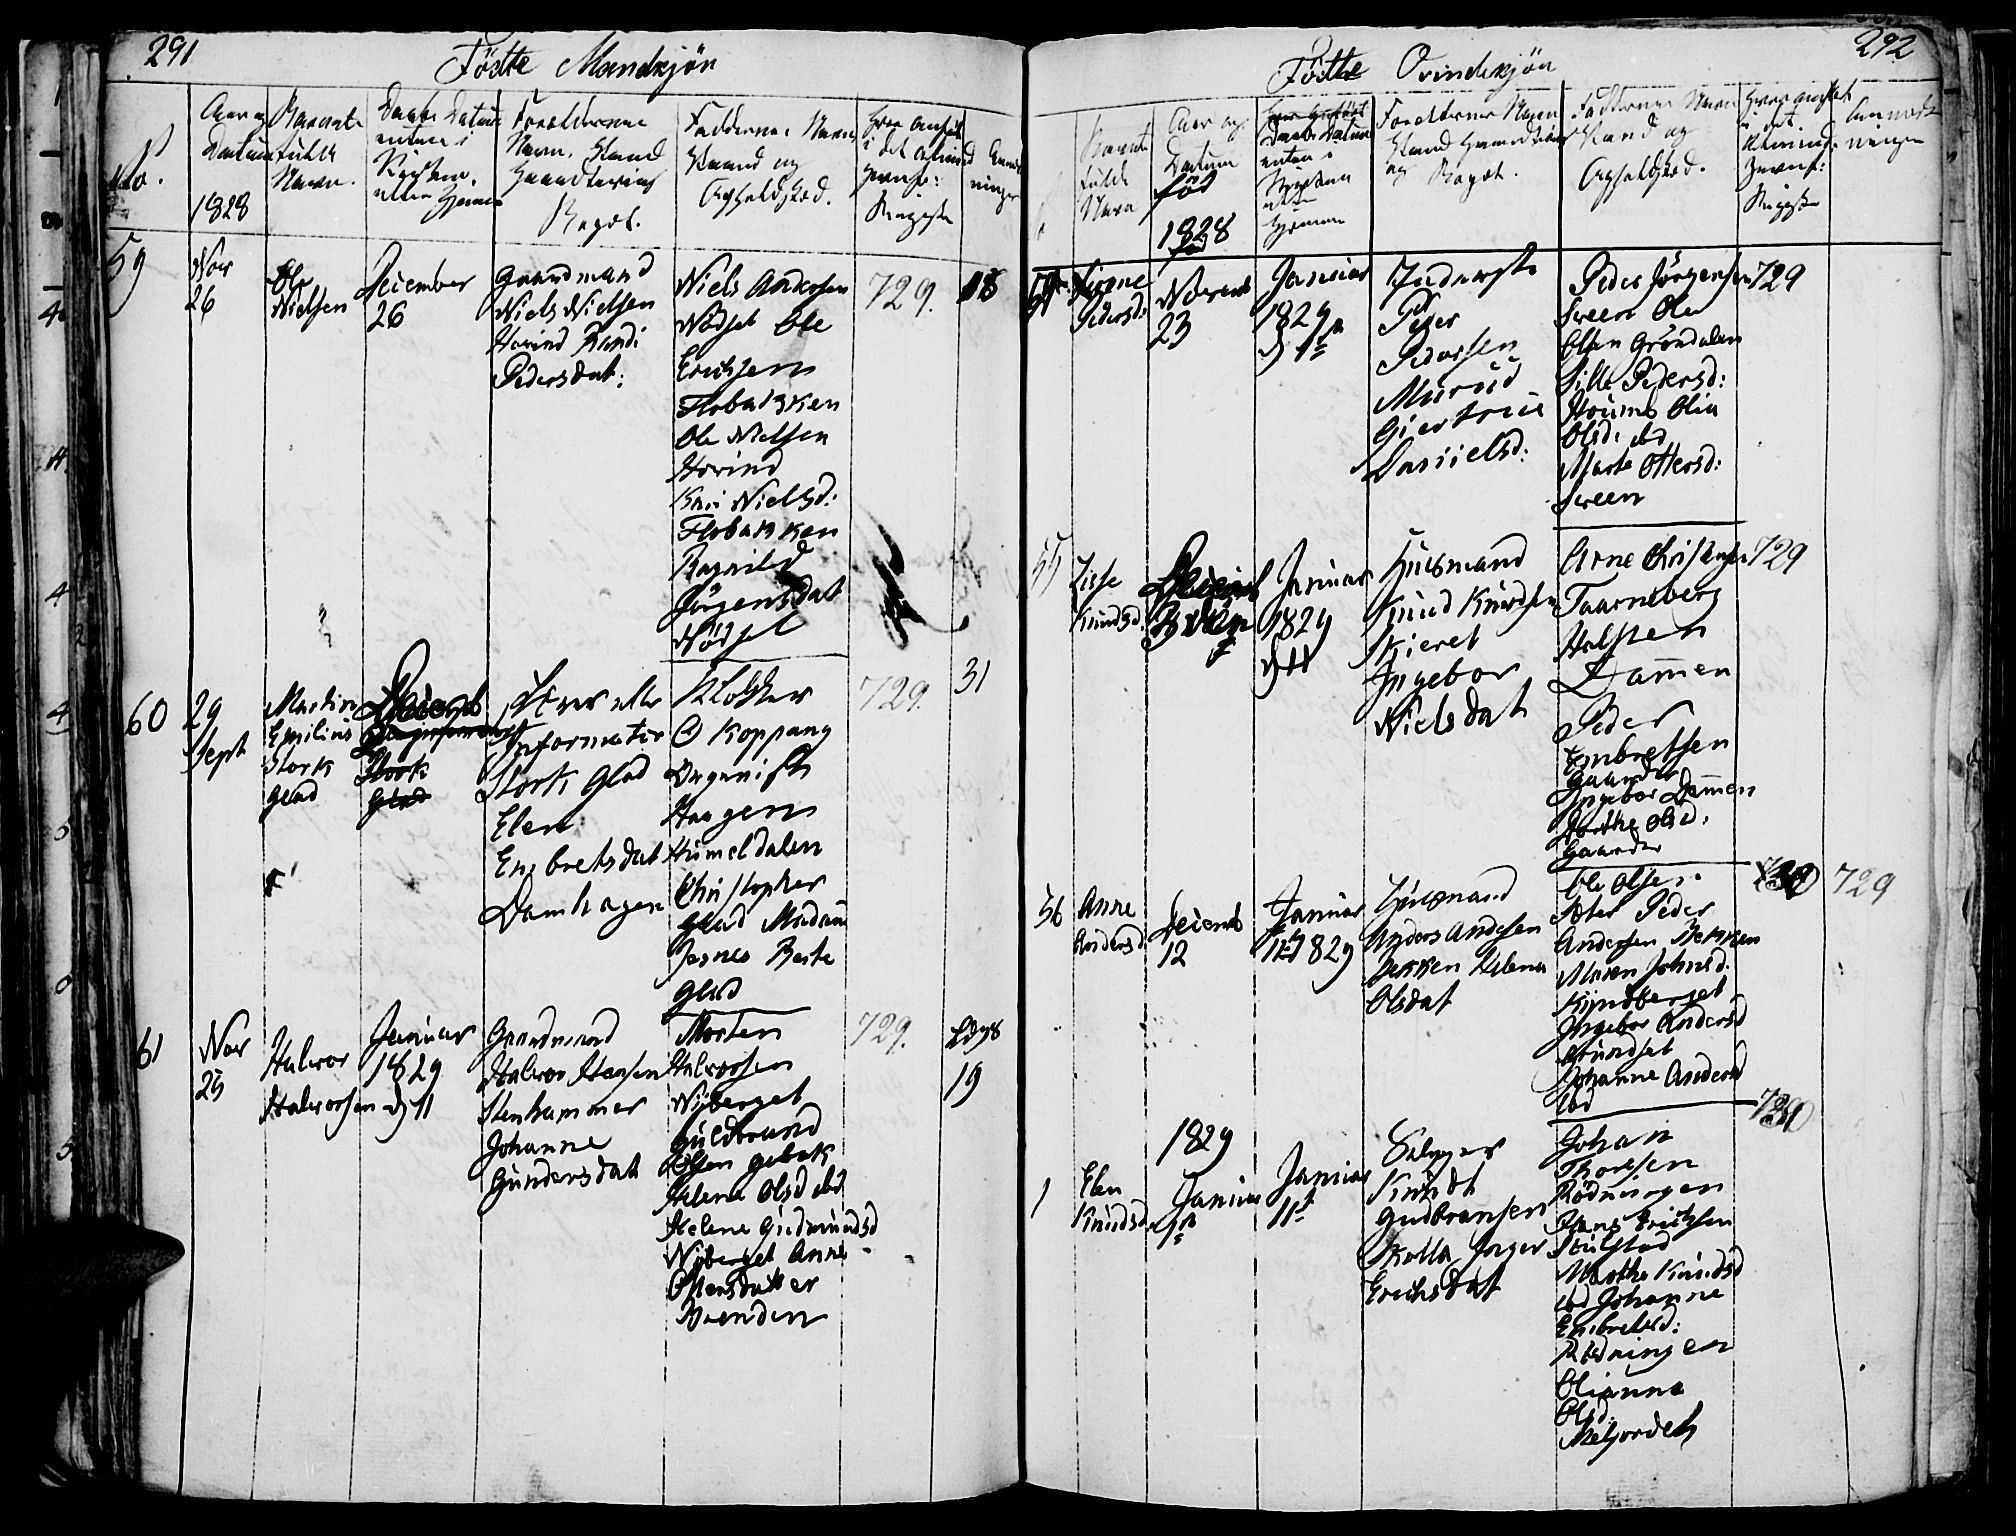 291
Födte Mandkjön
No.
Aar og
Datum
1828
Barnets
fulde
Navn.
Daabs Datum
enten i
Kirken
eller Hjemme
Forældrenes
Navn, Stand
Haandtering
Boepæl.
Faddernes Navn
Stand og
Opholdsted.
Hvor anført
i det almind
Jevnf:
Register
Anmærk
ninger
59
Nov
26
Ole
Nielsen
December
26
Gaardmand
Niels Nielsen
Hovind Randi
Pedersdat:
Niels Andersen
Nödset Ole
Erichsen
Flobakken
Ole Nielsen
Hovind
Kari Nielsd:
Flobakken
Ragnild
Jörgensdat
Nödset
729.
18
60
29
Sept
Martin
Emilius
Stork
Glad
Decemb
Stork
Glad
Lærer eller
Informator
Stork Glad
Elen
Embretsdat
Damhagen
Klokker
O Koppang
Organist
Haagen
Humeldalen
Christopher
Glad Madam
Berte
Glad
729.
31
61
Nov
25
Halvor
Halvorsen
Januar
1829
d 11
Gaardmand
Halvor Hansen
Stenhammer
Johanne
Gundersdat
Morten
Halvorsen
Nyberget
Guldbrand
Olsen
Helene Olsd ibd
Helene Gudmundsd
Nyberget Anne
Ostensdatter
Svenden
729.
19
292
Födte Qvindekjön
Barnets
fulde
Navn
Aar og
Datum
föd
1828
Daabs Datum
enten i
Kirken
eller
Hjemme
Forældrenes Navn
Stand Haandtering
og Boepæl.
Faddernes Navn
Stand og
Opholdsted.
Hvor anført
i det
Almind.
Jevnf:
Register
Anmærk
ninger
54
Sirene
Pedersd:
Novemb
23
Januar
1829
d 1te
Inderst
Peder
Pedersen
Murud
Giertrue
Danielsd:
Peder Jörgensen
Sveen Ole
Olsen Gröndalen
Sille Pedersd:
Houms Olia
Olsd: ibd
Marte Ottersd:
Sveen
729
55
Lisse
Knudsd
Decemb
Januar
1829
d 11
Huusmand
Knud Knudsen
Kieret
Ingebor
Nielsdat
Arne Christensen
Taarneberg
Halsten
Damen
Peder
Embretsen
Gaarder
Ingebor Damen
Dorthe Olsd:
Gaarder
729
56
Anne
Andersd
Decemb
12
Januar
11 1829
Huusmand
Anders Andersen
Bekken Helene
Olsdat
Ole Olsen
Sæter Peder
Andersen Bekken
Maren Johnsd.
Kyndberget
Ingebor Andersd
Grundset
Johanne Andersd
ibd
729
1
Elen
Knudsd
1829
Januar
1te
Januar
11te
Selvejer
Knudt
Gudbransen
Kolla Inger
Erichsdat
Johan
Thoresen
Rödningen
Hans Erichsen
Stulstad
Marthe Knudsd
ibd Johanne
Embretsd:
Rödningen
Olianna
Olsd.
Meljordet
729